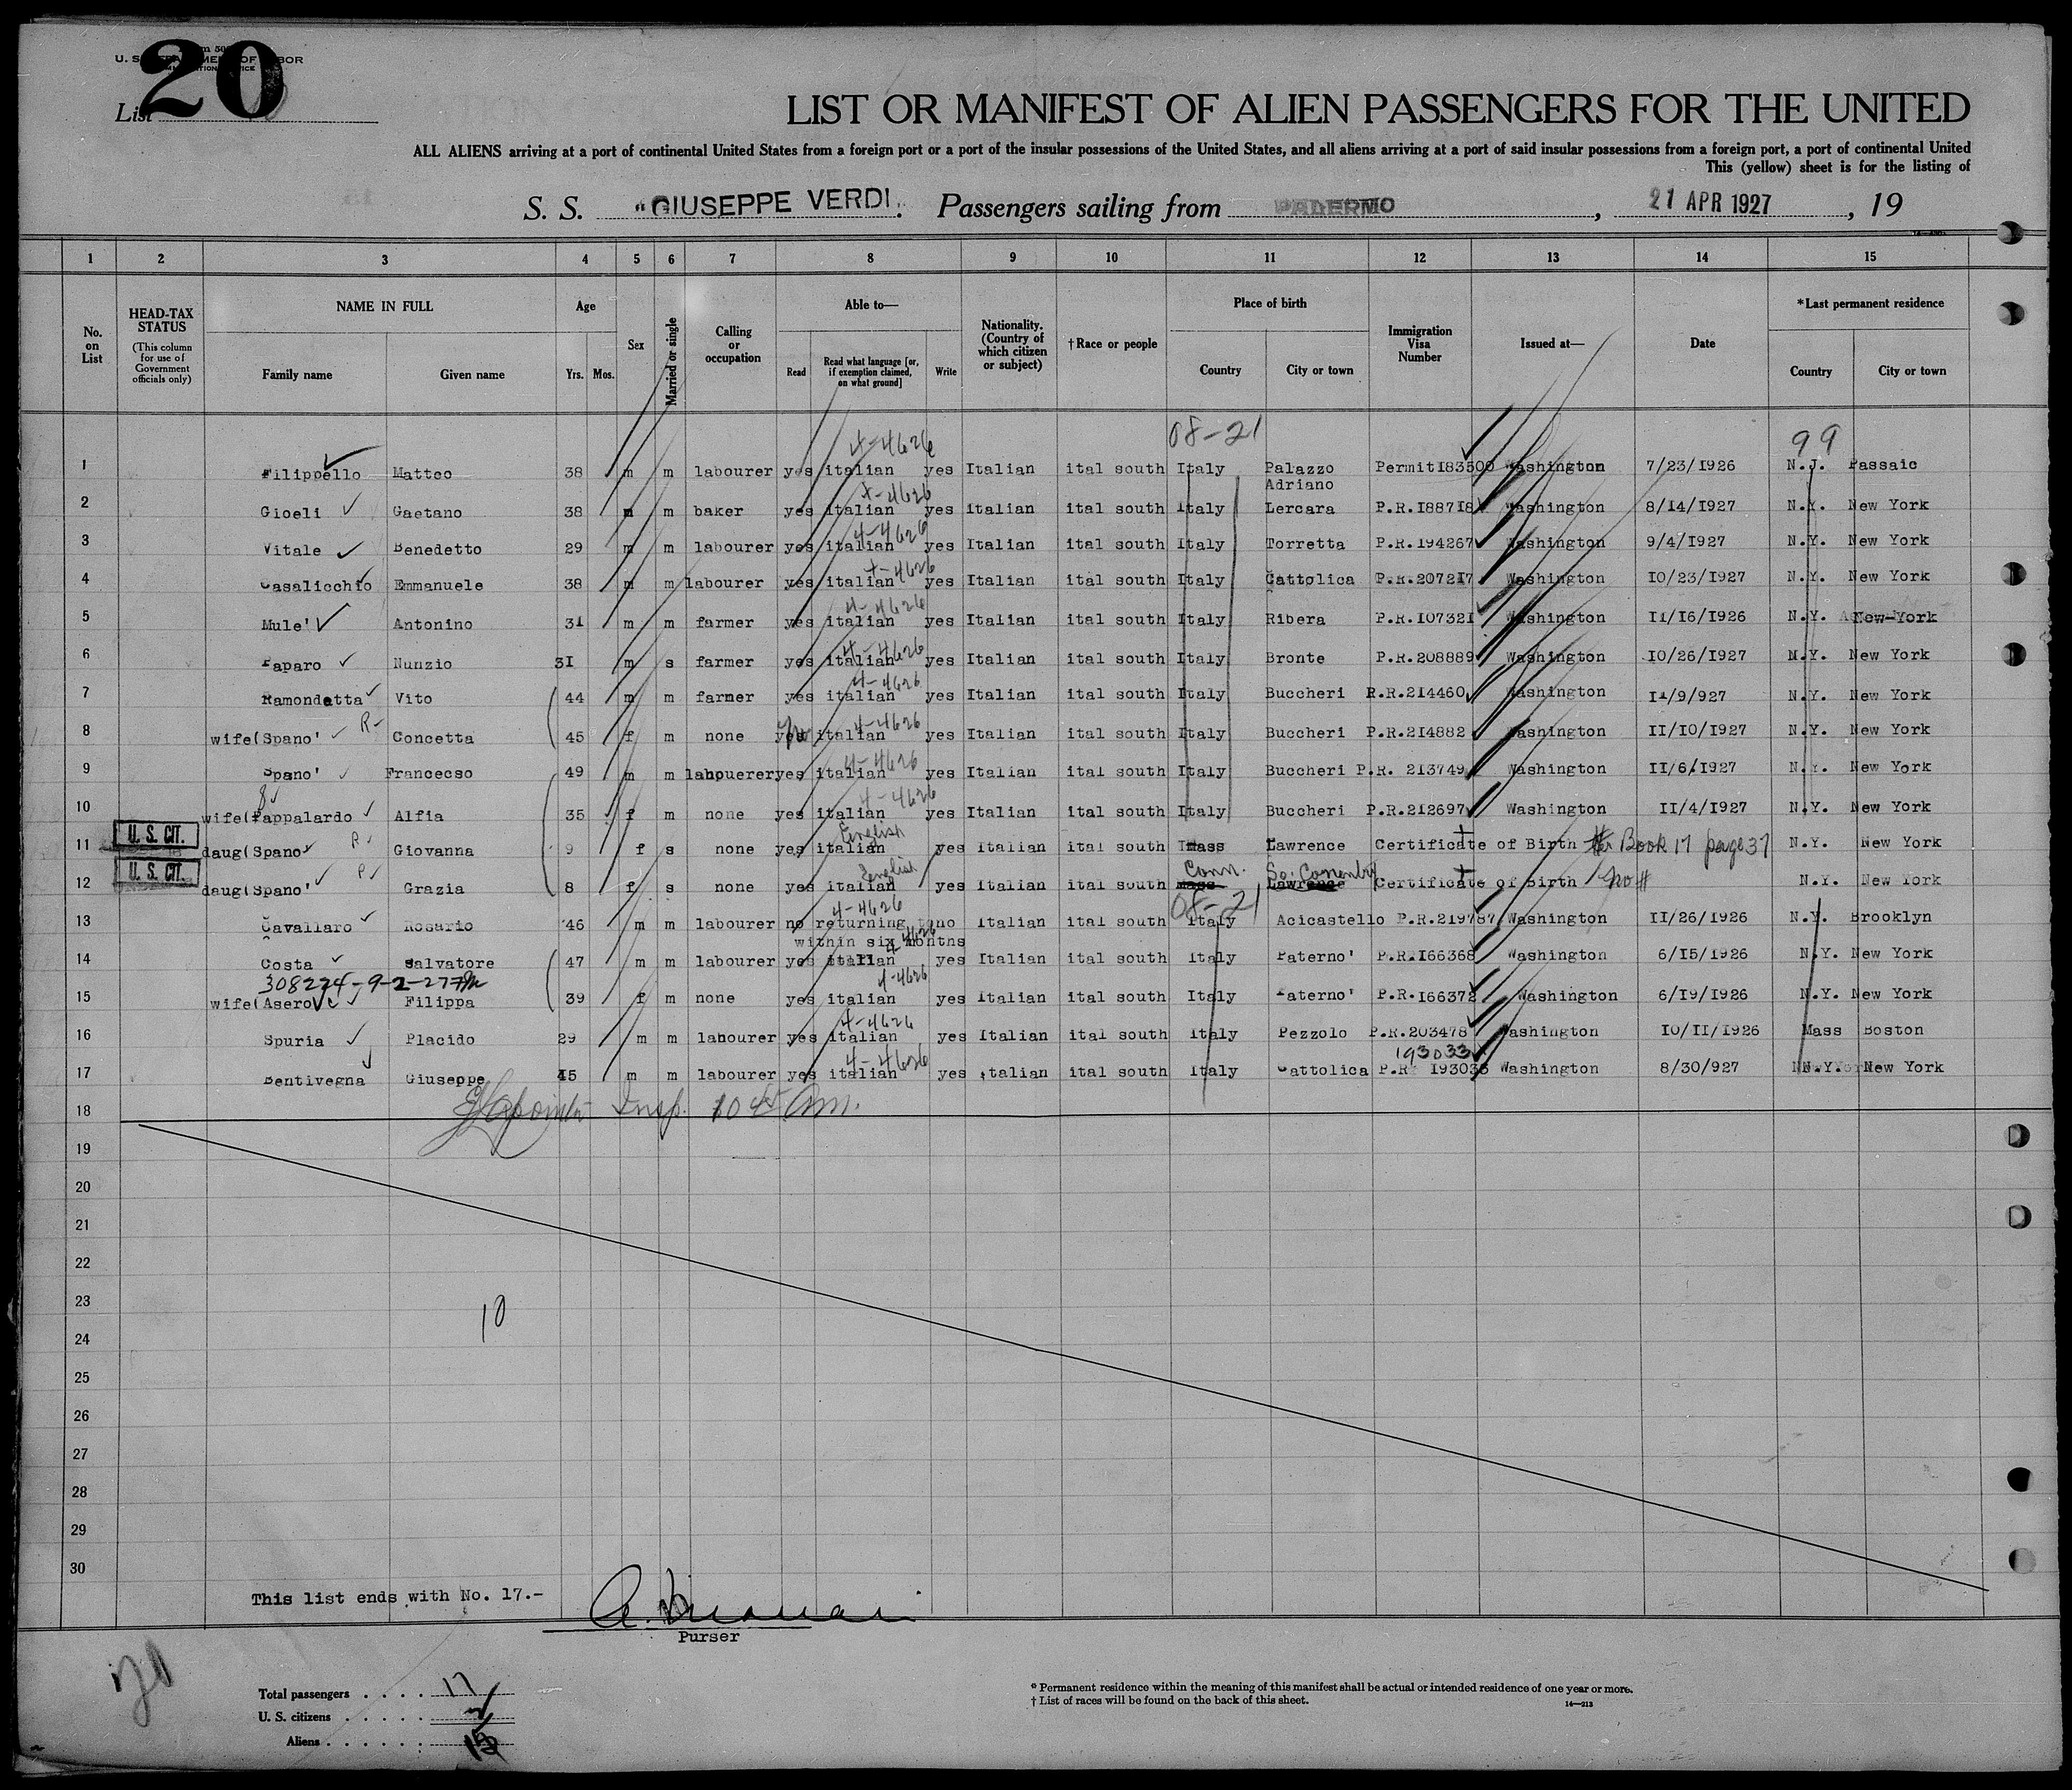 20
U. S. DEPARTMENT OF LABOR
List
LIST OR MANIFEST OF ALIEN PASSENGERS FOR THE UNITED
ALL ALIENS arriving at a port of continental United States from a foreign port or a port of the insular possessions of the United States, and all aliens arriving at a port of said insular possessions from a foreign port, a port of continental United
This (yellow) sheet is for the listing of
S. S. "GIUSEPPE VERDI". Passengers sailing from PALERMO, 21 APR 1927, 19
1 2 3 4 5 6 7 8 9 10 11 12 13 14 15
No. on List
HEAD-TAX STATUS (This column for use of Government officials only)
NAME IN FULL Family name Given name
Age Yrs. Mos.
Sex
Married or single
Calling or occupation
Able to— Read Read what language [or, if exemption claimed, on what ground] Write
Nationality. (Country of which citizen or subject)
†Race or people
Place of birth Country City or town
Immigration Visa Number
Issued at—
Date
*Last permanent residence Country City or town
4-4626 08-21 99
1 Filippello Matteo 38 m m labourer yes italian yes Italian ital south Italy Palazzo Adriano Permit183500 Washington 7/23/1926 N.J. Passaic
4-4626
2 Gioeli Gaetano 38 m m baker yes italian yes Italian ital south Italy Lercara P.R.188718 Washington 8/14/1927 N.Y. New York
4-4626
3 Vitale Benedetto 29 m m labourer yes italian yes Italian ital south Italy Torretta P.R.194267 Washington 9/4/1927 N.Y. New York
4-4626
4 Casalicchio Emmanuele 38 m m labourer yes italian yes Italian ital south Italy Cattolica P.R.207217 Washington 10/23/1927 N.Y. New York
4-4626
5 Mule' Antonino 31 m m farmer yes italian yes Italian ital south Italy Ribera P.R.107321 Washington 11/16/1926 N.Y. New-York
4-4626
6 Paparo Nunzio 31 m s farmer yes italian yes Italian ital south Italy Bronte P.R.208889 Washington 10/26/1927 N.Y. New York
4-4626
7 Ramondetta Vito 44 m m farmer yes italian yes Italian ital south Italy Buccheri R.R.214460 Washington 11/9/927 N.Y. New York
R- 4-4626
8 wife(Spano' Concetta 45 f m none yes italian yes Italian ital south Italy Buccheri P.R.214882 Washington 11/10/1927 N.Y. New York
4-4626
9 Spano' Francecso 49 m m labouerer yes italian yes Italian ital south Italy Buccheri P.R. 213749 Washington 11/6/1927 N.Y. New York
4-4626
10 wife(Pappalardo Alfia 35 f m none yes italian yes Italian ital south Italy Buccheri P.R.212697 Washington 11/4/1927 N.Y. New York
U. S. CIT. English
11 daug(Spano' Giovanna 9 f s none yes italian yes Italian ital south Mass Lawrence Certificate of Birth Book 17 page 37 N.Y. New York
U. S. CIT. English Conn. So.
12 daug(Spano' Grazia 8 f s none yes italian yes Italian ital south Mass Lawrence Certificate of Birth no # N.Y. New York
4-4626 08-21
13 Cavallaro Rosario 46 m m labourer no returning to no Italian ital south Italy Acicastello P.R.219787 Washington 11/26/1926 N.Y. Brooklyn
within six months 4-4626
14 Costa Salvatore 47 m m labourer yes italian yes Italian ital south Italy Paterno' P.R.166368 Washington 6/15/1926 N.Y. New York
308224-9-2-27 4-4626
15 wife(Asero Filippa 39 f m none yes italian yes Italian ital south Italy Paterno' P.R.166372 Washington 6/19/1926 N.Y. New York
4-4626
16 Spuria Placido 29 m m labourer yes italian yes Italian ital south Italy Pezzolo P.R.203478 Washington 10/11/1926 Mass Boston
4-4626 193033
17 Bentivegna Giuseppe 45 m m labourer yes italian yes Italian ital south Italy Cattolica P.R. 193036 Washington 8/30/927 N.Y. New York
18 Insp. 10 45 Am.
19
20
21
22
23
10
24
25
26
27
28
29
30
This list ends with No. 17.-
Purser
20
Total passengers . . . . 17
U. S. citizens . . . . . 2
Aliens . . . . . . 15
* Permanent residence within the meaning of this manifest shall be actual or intended residence of one year or more.
† List of races will be found on the back of this sheet.
14—213